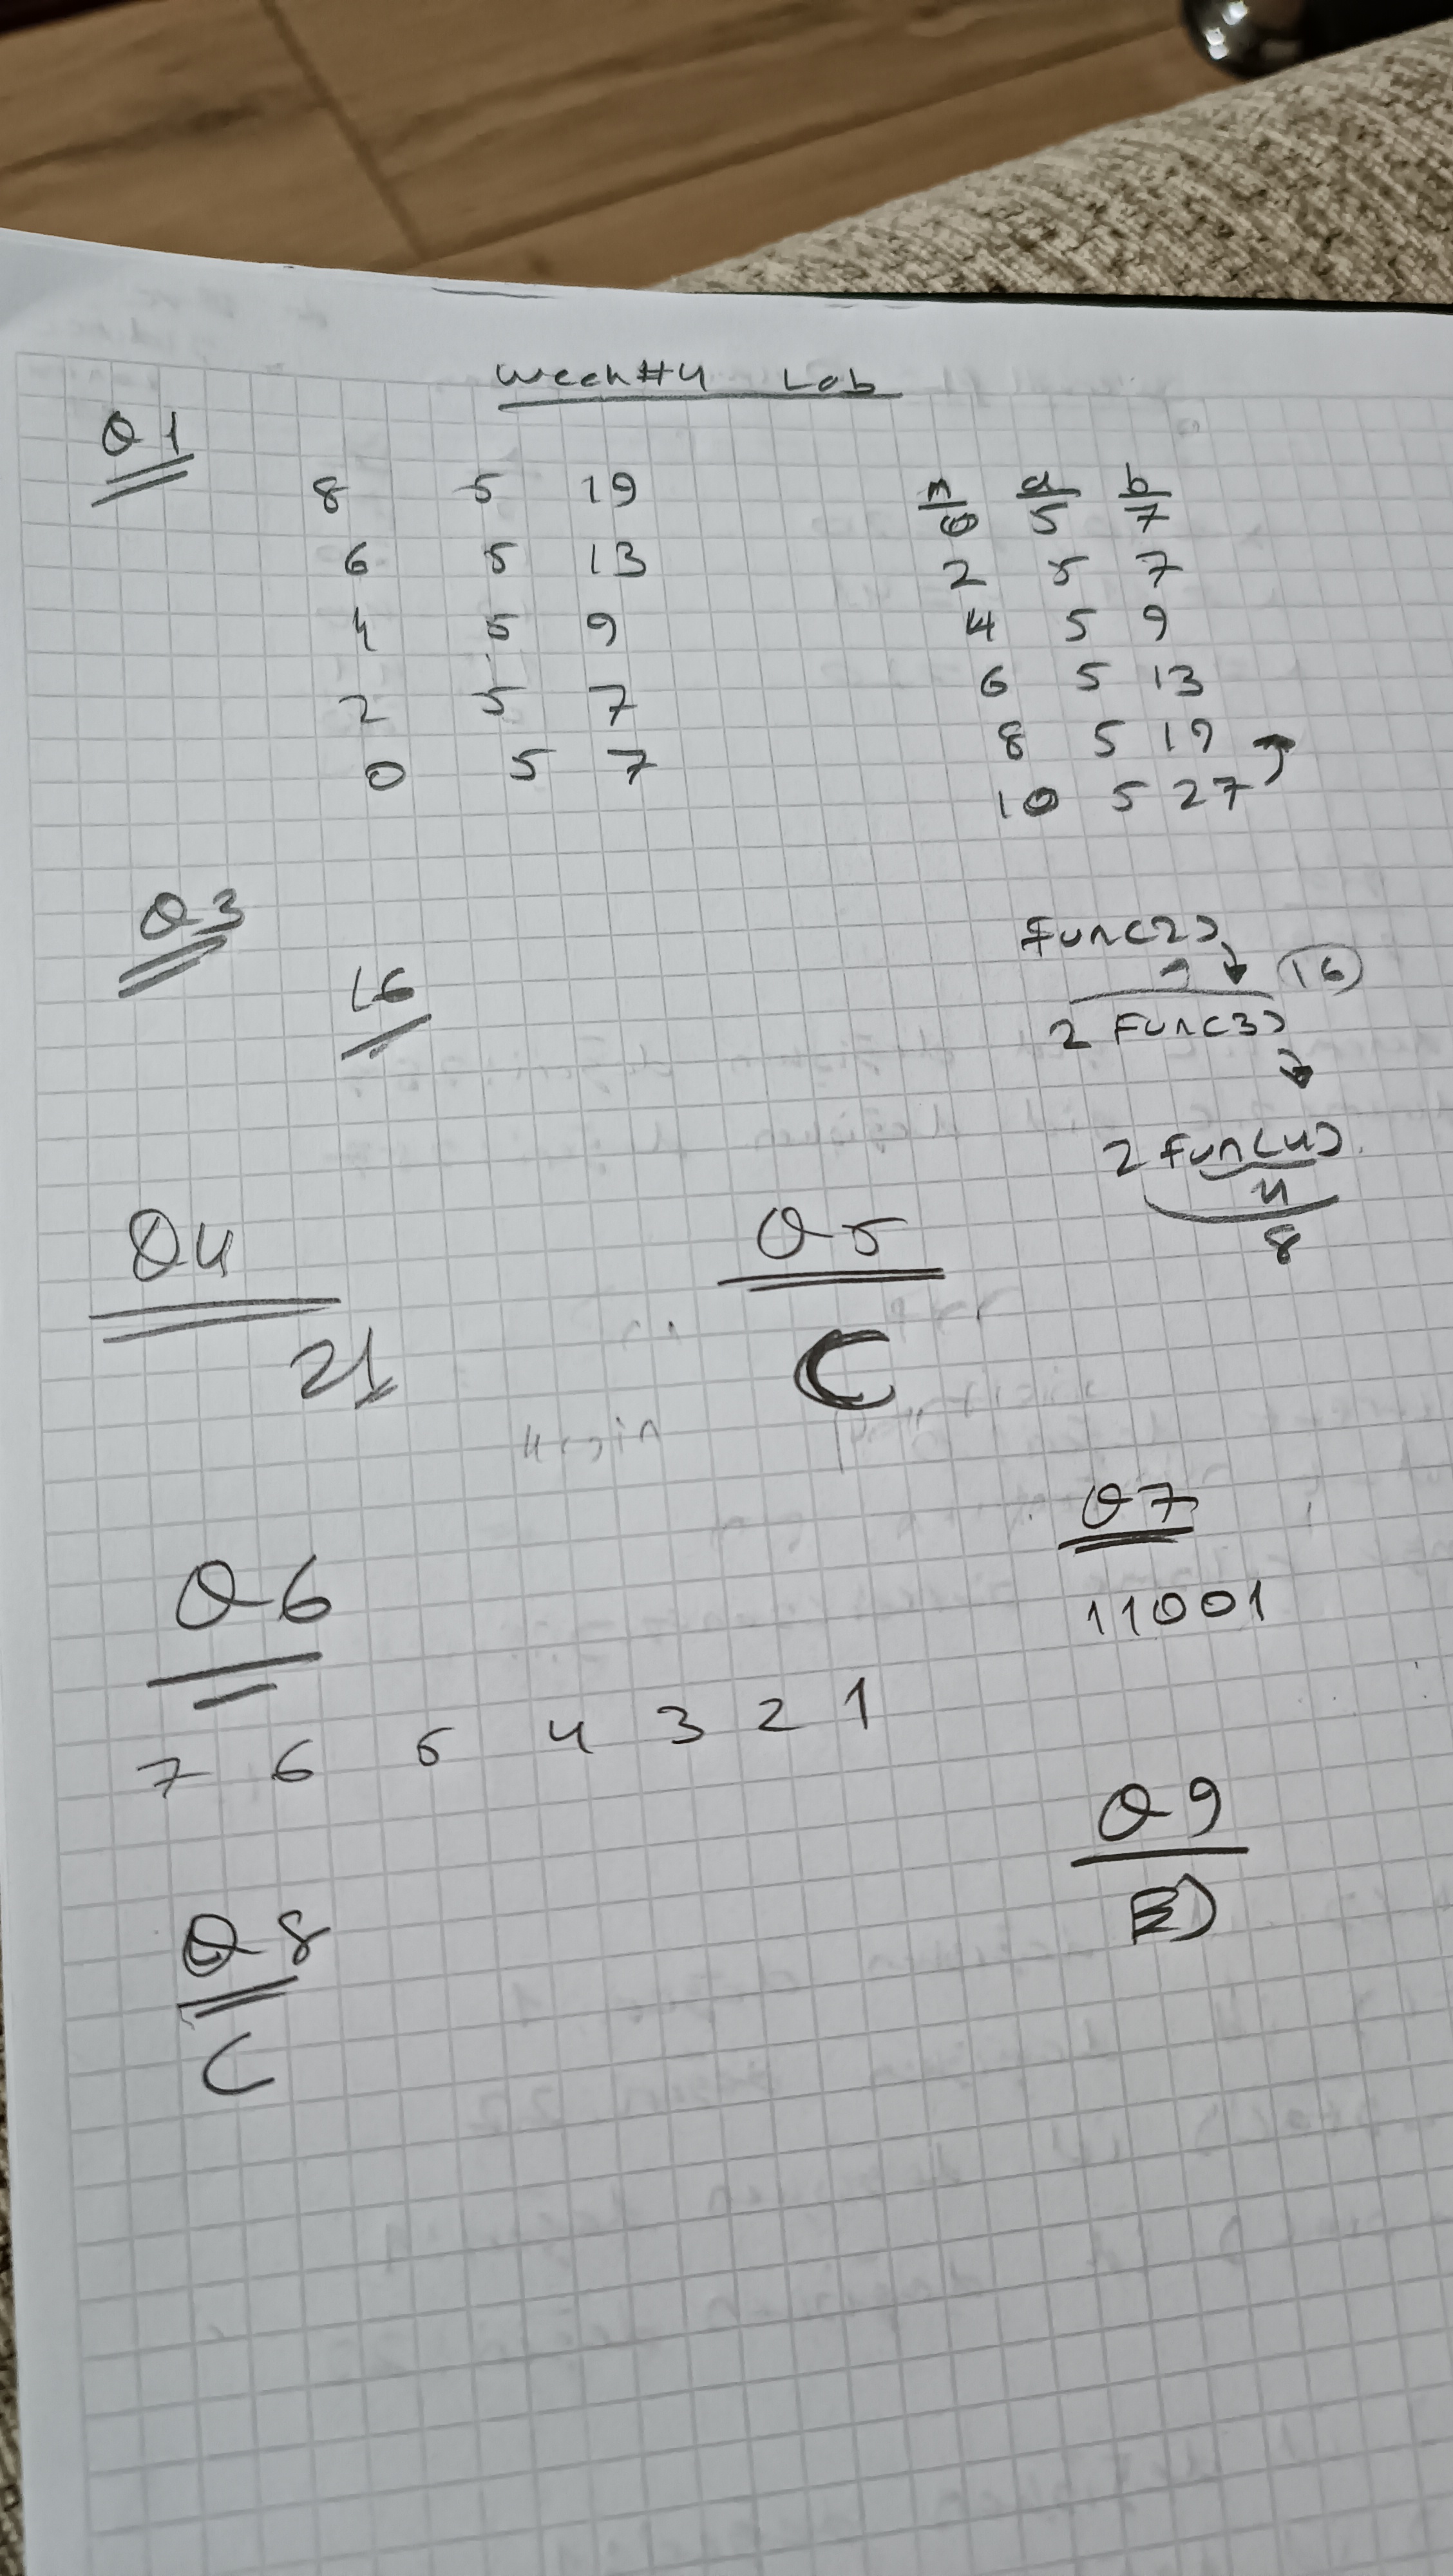 Week#4 Lab
Q1
8 5 19
6 5 13
4 5 9
2 5 7
0 5 7
n a b
0 5 7
2 5 7
4 5 9
6 5 13
8 5 19
10 5 27
Q3
16
Func(2)
16
2 Func(3)
2 Func(4)
4
8
Q4
21
Q5
C
Q6
7 6 5 4 3 2 1
Q7
11001
Q8
C
Q9